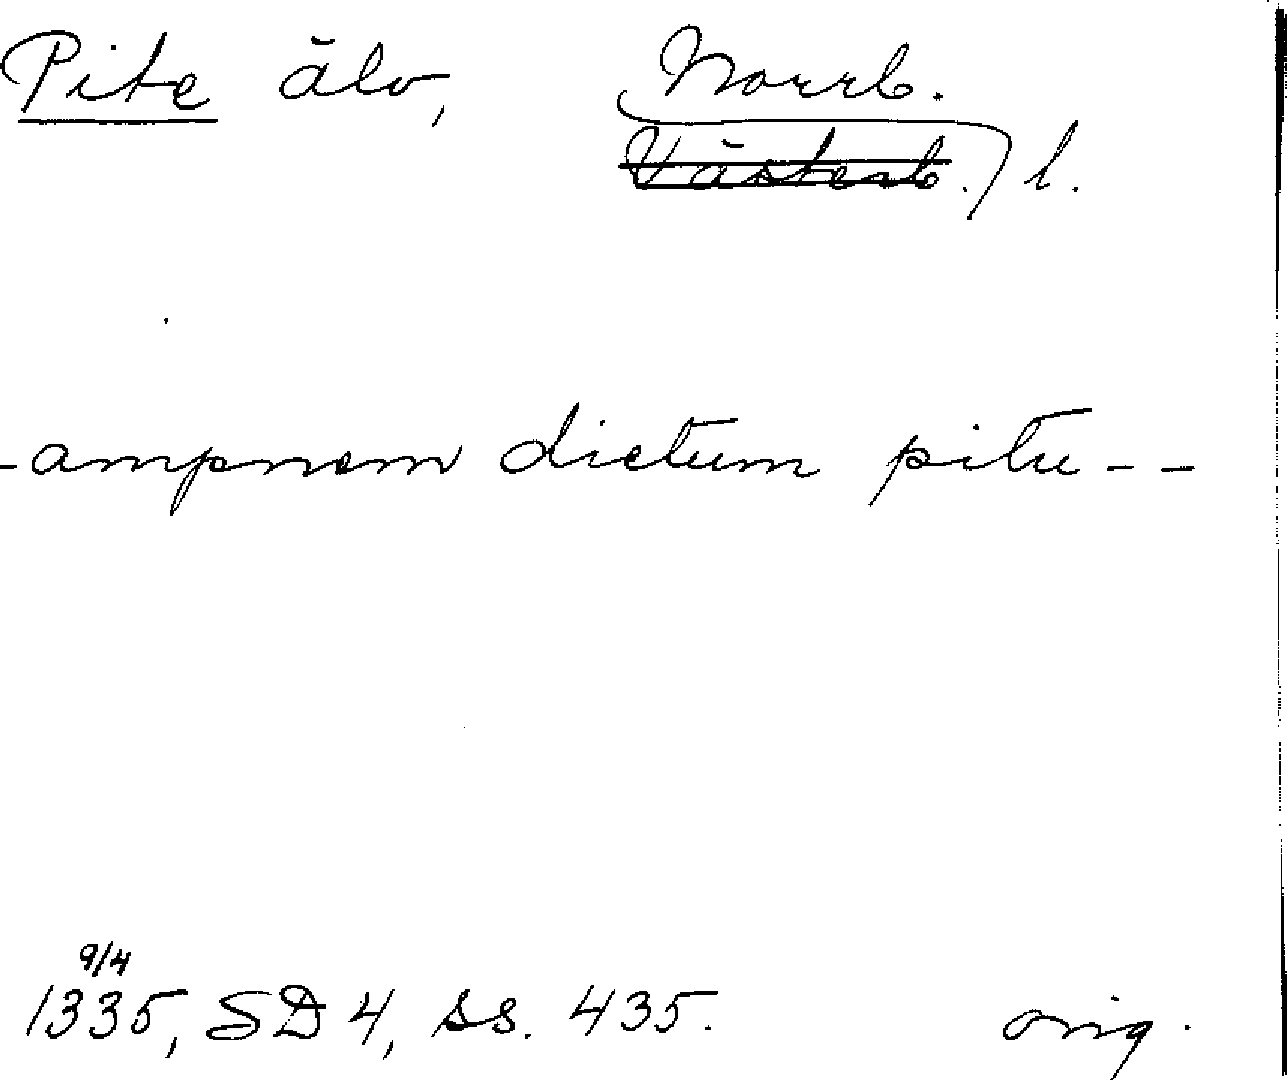 Pite älv, Norrb.
Västerb. l.
- ampnem dictum pitu - -
9/4
1335, SD 4, ss. 435. orig.